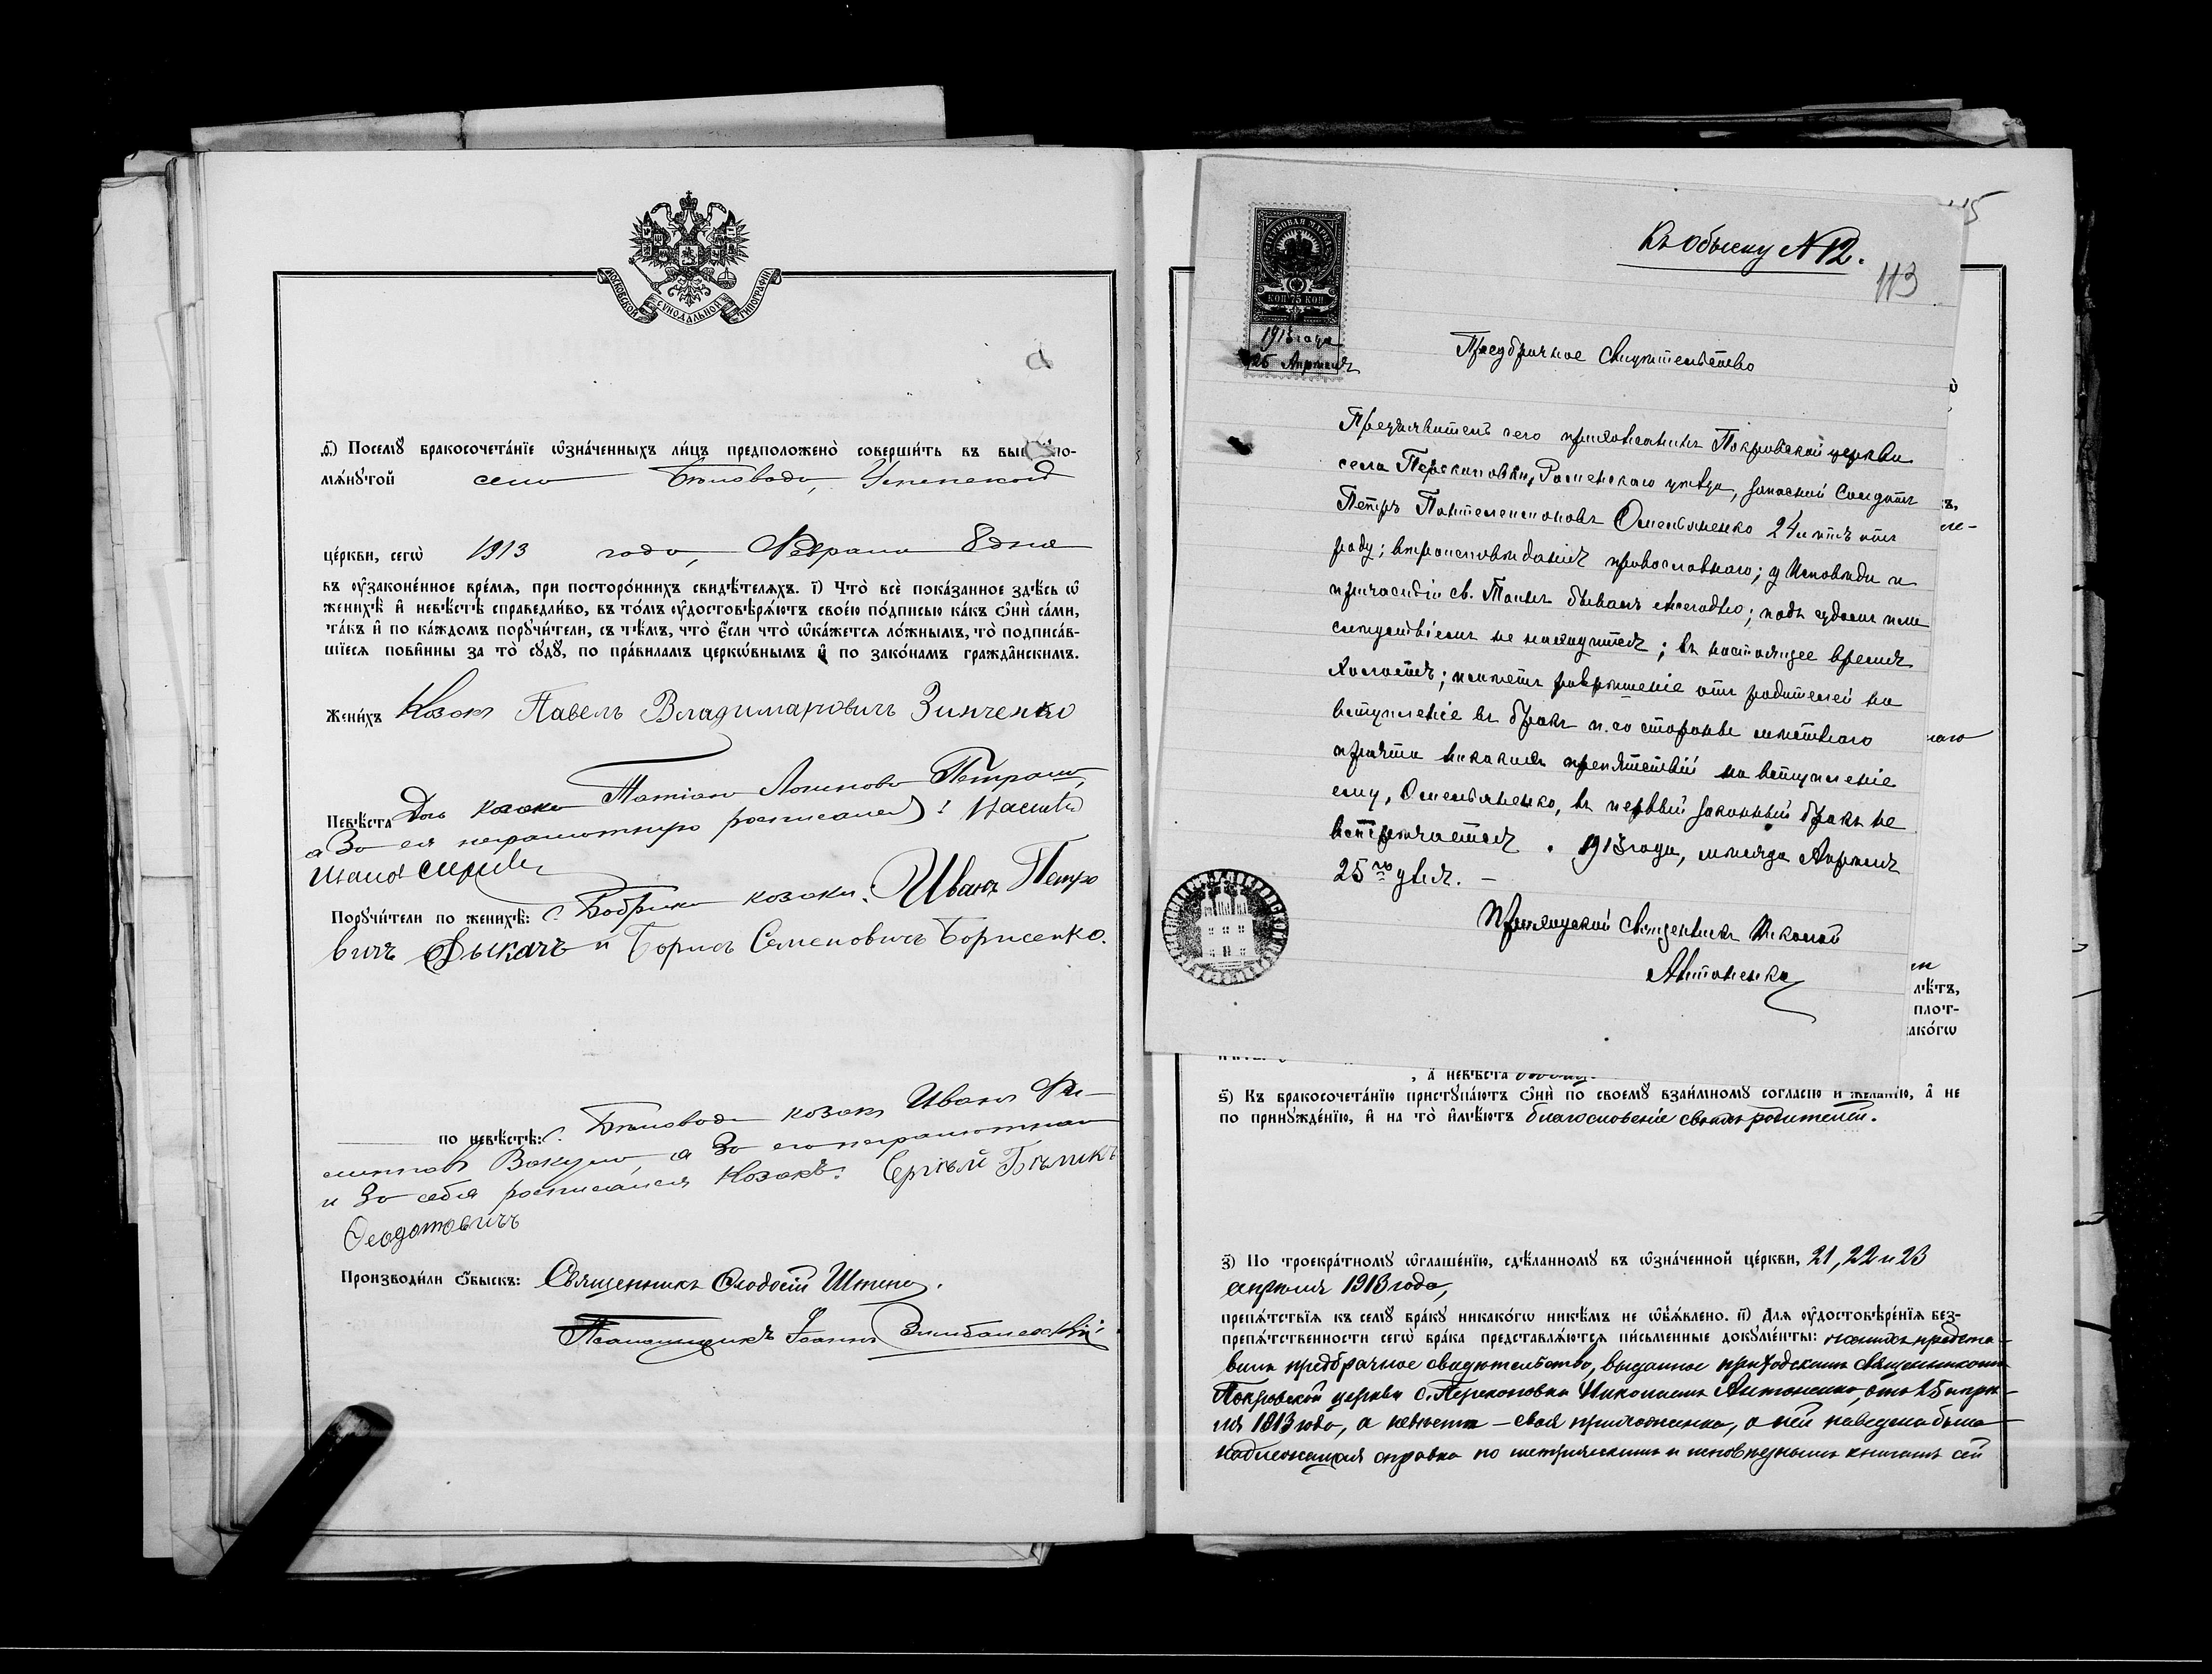 МОСКОВСКОЙ СѴНОДАЛЬНОЙ ТИПОГРАФІИ
Посемꙋ бракосочета́нїе ѡзна́ченныхъ ли́цъ предположено̀ соверши́ть въ
мѧ́нꙋтой село Бѣловодъ, Успенской
це́ркви, сегѡ̀ 1913 года, Февраля 8 дня
въ ᲂу҆законе́нное вре́мѧ, при посторо́ннихъ свидѣ́телѧхъ. і҃) Что̀ всѐ пока́занное здѣ́сь ѡ҆
женихѣ̀ и҆ невѣ́стѣ справедли́во, въ то́мъ ᲂу҆достовѣрѧ́ютъ свое́ю по́дписью ка́къ ѻ҆нѝ са́ми,
та́къ и҆ по ка́ждомъ порꙋчи́тели, съ тѣ́мъ, что̀ є҆́сли что̀ ѡ҆ка́жетсѧ ло́жнымъ, то̀ подписа́в-
шїесѧ пови́нны за то̀ сꙋдꙋ̀, по пра́виламъ церко́внымъ и҆ по зако́намъ гражда́нскимъ.
Жени́хъ Козакъ Павелъ Владимировичъ Зинченко
Невѣ́ста Дочь козака Татіана Логинова Петраш
а за ея неграмотную росписался:
Порꙋчи́тели по женихѣ̀: с. Бобрика козаки: Иванъ Петро
вичъ Дыкачъ и Борисъ Семеновичъ Борисенко.
по невѣ́стѣ: с. Бѣловода козакъ Иванъ Фи-
липповъ Вакула, а за его неграмотнаго
и за себя росписался козакъ: Сергѣй Бѣликъ
Феодотовичъ
Производи́ли ѻ҆́быскъ: Священникъ Феодосій
Псаломщикъ Іоаннъ
Къ обыску N 12.
113
ГЕРБОВАЯ МАРКА
КОП 75 КОП
1913 года
25 Апрѣля
Предбрачное свидѣтельство
Предъявитель сего прихожанинъ Покровской церкви
села Перекоповки, Роменскаго уѣзда, запасный Солдатъ
Петръ Пантелеимоновъ Омельяненко 24 лѣтъ отъ
роду; вѣроисповѣданія православнаго; у Исповѣди и
причастія св. Таинъ бываетъ ежегодно; подъ судомъ или
слѣдствіемъ не находится; въ настоящее время
холостъ; имѣетъ разрѣшеніе отъ родителей на
вступленіе въ бракъ и со стороны мѣстнаго
причта никакихъ препятствій на вступленіе
ему, Омельяненко, въ первый законный бракъ не
встрѣчается. 1913 года, мѣсяца Апрѣля
25 го дня. –
Приходскій Священникъ Николай
Антоненко
лѣ́тъ,
плот-
а҆ невѣ́ста
ѕ҃) Къ бракосочета́нїю пристꙋпа́ютъ ѻ҆нѝ по своемꙋ̀ взаи́мномꙋ согла́сїю и жела́нїю, а҆ не
по принꙋжде́нїю, и҆ на то̀ и҆мѣ́ютъ благословеніе своихъ родителей.
з҃) По троекра́тномꙋ ѡ҆глаше́нїю, сдѣ́ланномꙋ въ ѡ҆зна́ченной це́ркви, 21, 22 и 23
апрѣля 1913 года,
препѧ́тствїѧ къ семꙋ̀ бра́кꙋ никако́гѡ никѣ́мъ не ѡ҆б̾ѧ́влено. и҃) Длѧ ᲂу҆достовѣре́нїѧ без-
препѧ́тственности сегѡ̀ бра́ка представлѧ́ютсѧ пи́сьменные докꙋме́нты: женихъ предста-
вилъ предбрачное свидѣтельство, выданное приходскимъ священникомъ
Покровской церкви с. Перекоповки Николаемъ Антоненко, отъ 25 апрѣ-
ля 1913 года, а невѣста – своя прихожанка, о ней наведена была
надлежащая справка по метрическимъ и исповѣднымъ книгамъ сей